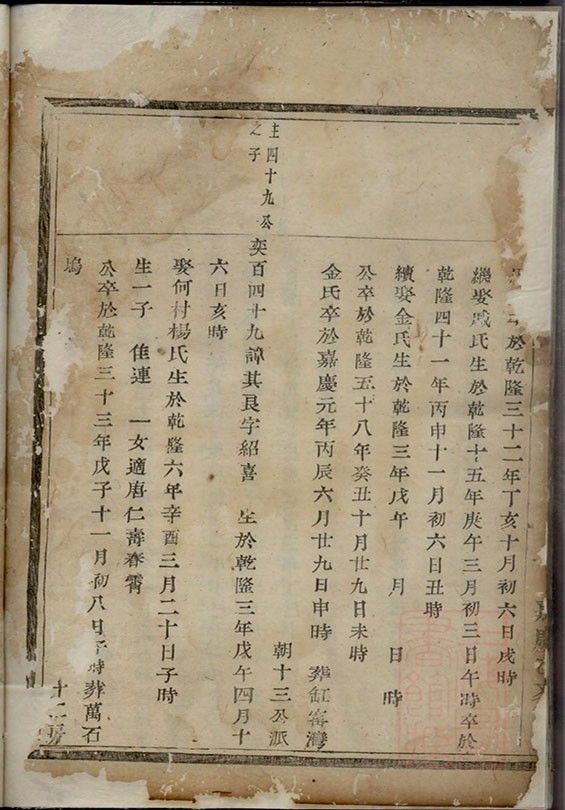 於乾隆三十二年丁亥十月初六日戌時
繼娶戚氏生於乾隆十五年庚午三月初三日午時卒於
乾隆四十一年丙申十一月初六日丑時
續娶金氏生於乾隆三年戊午 月 日 時
公卒於乾隆五十八年癸丑十月廿九日未時
金氏卒於嘉慶元年丙辰六月廿九日申時 葬缸窰灣
朝十三公派
主四十九公
之子
奕百四十九諱其良字紹喜 生於乾隆三年戊午四月十
六日亥時
娶何村楊氏生於乾隆六年辛酉三月二十日子時
生一子 佳連 一女適唐仁壽春霽
公卒於乾隆三十三年戊子十一月初八日子時葬萬石
塢
十二房